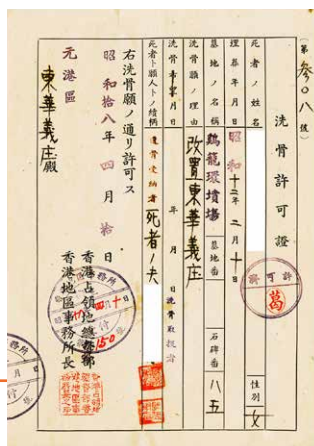 第参〇八號
洗骨許可證
許可
萬
死者ノ姓名
性別 女
埋葬年月日 昭和十二年二月十日
墓地ノ名稱 鷄籠環墳場 墓地番 石碑番 八五
洗骨願ノ理由 改置東華義庄
洗骨希望月日 年 月 日 洗骨取扱者
死者ト願人トノ續柄 遺骨受納者 死者ノ夫
右洗骨願ノ通リ許可ス
昭和十八年四月拾日
香港占領地總督部
香港地區事務所長
元港區
東華義庄殿